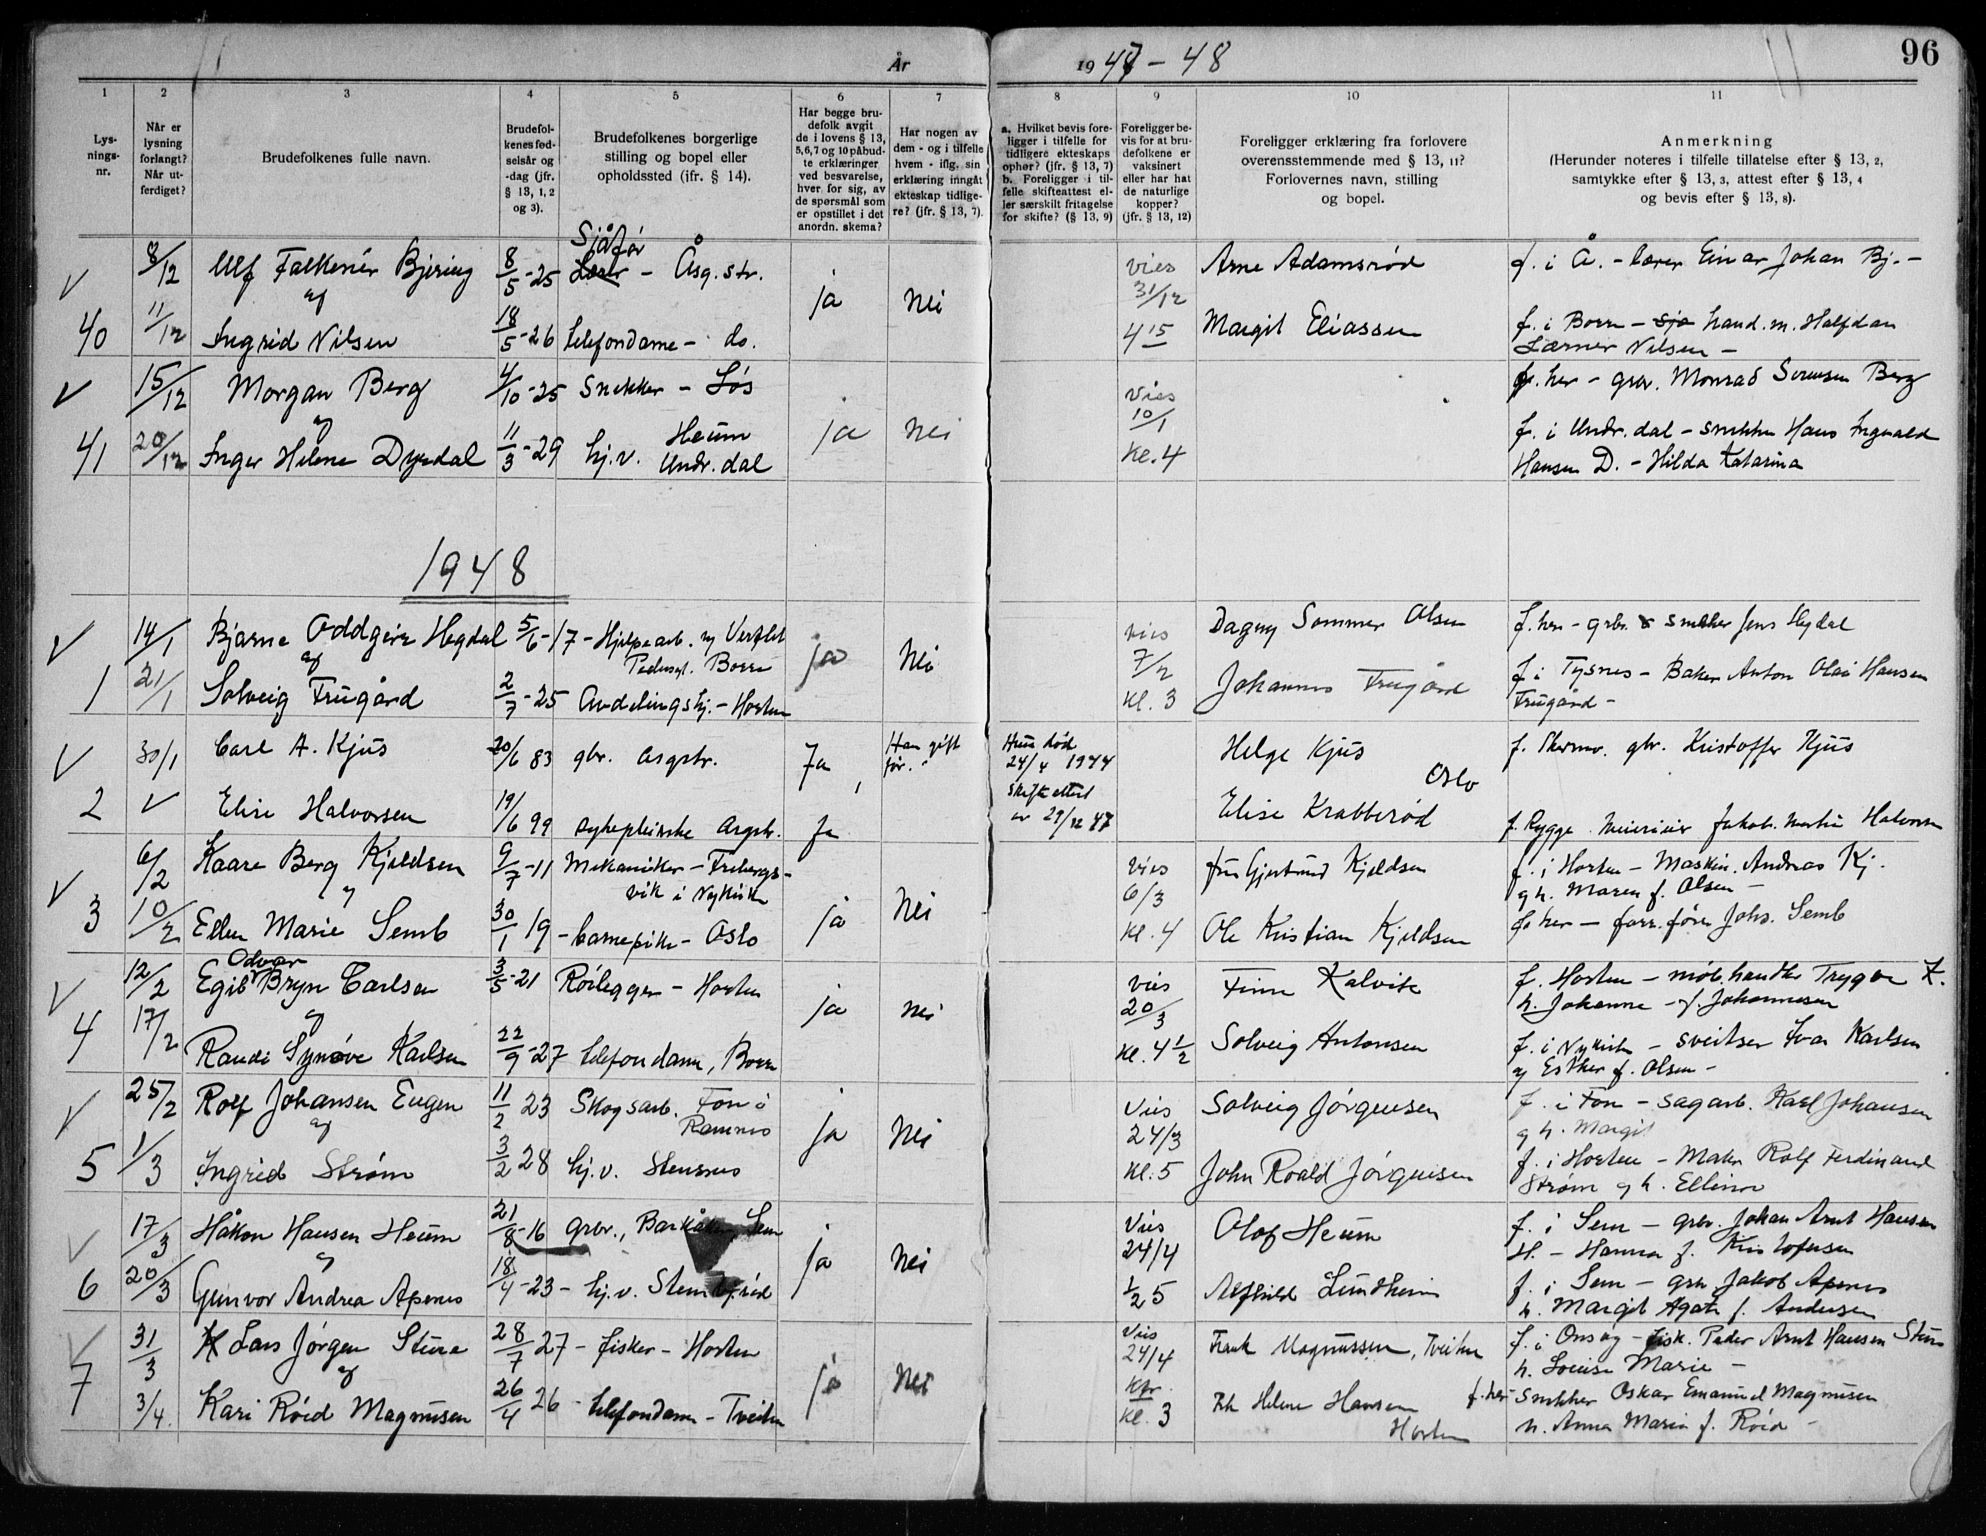 År 1947 - 48
96
1 2 3 4 5 6 7 8 9 10 11
Lys-
nings-
nr.
Når er
lysning
forlangt?
Når ut-
ferdiget?
Brudefolkenes fulle navn.
Brudefol-
kenes fød-
selsår og
-dag (jfr.
§ 13, 1, 2
og 3).
Brudefolkenes borgerlige
stilling og bopel eller
opholdssted (ifr. § 14).
Har begge bru-
defolk avgit
de i lovens § 13,
5,6,7 og 10 påbud-
te erklæringer
ved besvarelse,
hver for sig, av
de spørsmål som
er opstillet i det
anordn. skema?
Har nogen av
dem - og i tilfelle
hvem - iflg. sin
erklæring inngåt
ekteskap tidlige-
re? (jfr. § 13, 7).
a. Hvilket bevis fore-
ligger i tilfelle for
tidligere ekteskaps
ophør? (jfr. § 13, 7)
b. Foreligger i til-
felle skifteattest el-
ler særskilt fritagelse
for skifte? (§ 13, 9)
Foreligger be-
vis for at bru-
defolkene er
vaksinert
eller har hat
de naturlige
kopper?
(jfr. § 13, 12)
Foreligger erklæring fra forlovere
overensstemmende med § 13, 11?
Forlovernes navn, stilling
og bopel.
Anmerkning
(Herunder noteres i tilfelle tillatelse efter § 13, 2,
samtykke efter § 13, 3, attest efter § 13, 4
og bevis efter § 13, 8).
Sjåfør
8/12 Ulf Falkenér Bjering 8/5-25 - Åsg. str. vies Arne Adamsrød f. i Å. - lærer Einar Johan Bj. -
og ja nei 31/12
40 11/12 Ingrid Nilsen 18/5-26 telefondame - do. 4 15 Margit Eliassen f. i Borre - sjø hand. m. Halfdan
Lærner Nilsen -
15/12 Morgan Berg 4/10-25 Snekker - Løs vies f. her - gbr. Monrad Sørensen Berg
og ja nei 10/1
Heum
41 20/12 Inger Helene Dyrdal 11/3-29 hj.v. Undr. dal Kl. 4 f. i Undr. dal - snekker Hans Ingvald
Hansen D. - Hilda Katarina
1948
14/1 Bjarne Oddgeir Hegdal 5/6-17 - Hjelpearb. vies Dagny Sommer Olsen f. her - gbr. snekker Jens Hegdal
og Borre ja nei 7/2
1 21/1 Solveig Frugård 2/7-25 Avdelingshj. - Horten Kl. 3 Johannes Frugård f. i Tysnes - Baker Anton Olai Hansen
Frugård -
30/1 Carl A. Kjus 20/6 83 gbr. Asgstr. Ja Han gift
før. Hun død
24/4 1944 Helge Kjus f. Skermo. gbr. Kristoffer Kjus
Oslo
2 Elise Halvorsen 19/6 99 sykepleierske Asgstr. Ja Skifteattest
av 29/12 47 Elise Krabberød f. Rygge Meieri Jakob Halvorsen
6/2 Kaare Berg Kjeldsen 9/7-11 Mekaniker - Frebergs-
vik i Nykirke vies fru Gjertrud Kjeldsen f. i Horten - Maskin. Andreas Kj.
og ja nei 6/3 og h. Maren f. Olsen -
3 10/2 Ellen Marie Semb 30/1 19 - barnepike - Oslo Kl. 4 Ole Kristian Kjeldsen f. her - Johs. Semb
Odvar
12/2 Egil Bryn Carlsen 3/5-21 Rørlegger - Horten vies Finn Kalvik f. Horten - møbhandler Trygve K.
og ja nei 20/3 h. Johanne - f. Johannesen
4 17/2 Randi Synøve Karlsen 22/9-27 telefondame, Borre Kl. 4 1/2 Solveig Antonsen f. i Nykirke - sveitser Ivar Karlsen
og Esther f. Olsen -
25/2 Rolf Johansen Eugen 11/2 23 Skogsarb. Fon i
Ramnes Vies Solveig Jørgensen f. i Fon - sagarb. Karl Johansen
og ja nei 24/3 og h. Margit
5 1/3 Ingrid Strøm 3/2 28 hj.v. Stensnes Kl. 5 John Roald Jørgensen f. i Horten - Maler Rolf Ferdinand
Strøm og h. Ellinor
17/3 Håkon Hansen Heum 21/8-16 gbr., Barkåker, Sem Vies Olaf Heum f. i Sem - gbr. Johan Arnt Hansen
og ja nei 24/4 H. - Hanna f. Kristofersen
6 20/3 Gunvor Andrea Apenes 18/4-23 - hj.v. 1/2 5 Alfhild Lundheim f. i Sem - gbr. Jakob Apenes
h. Margit Agate f. Andersen
31/3 Lars Jørgen Sture 28/7 27 - fisker - Horten Vies
24/4 Frank Magnussen, Tveiten f. i Onsøy - fisk. Peder Arnt Hansen Sture
og ja nei h. Lovise Marie -
7 3/4. Kari Röed Magnusen 26/4 26 - telefondame - Tveiten Kl. 3 Helene Hansen
Horten f. her - Snekker Oskar Emanuel Magnusen
h. Anna Maria f. Röed -